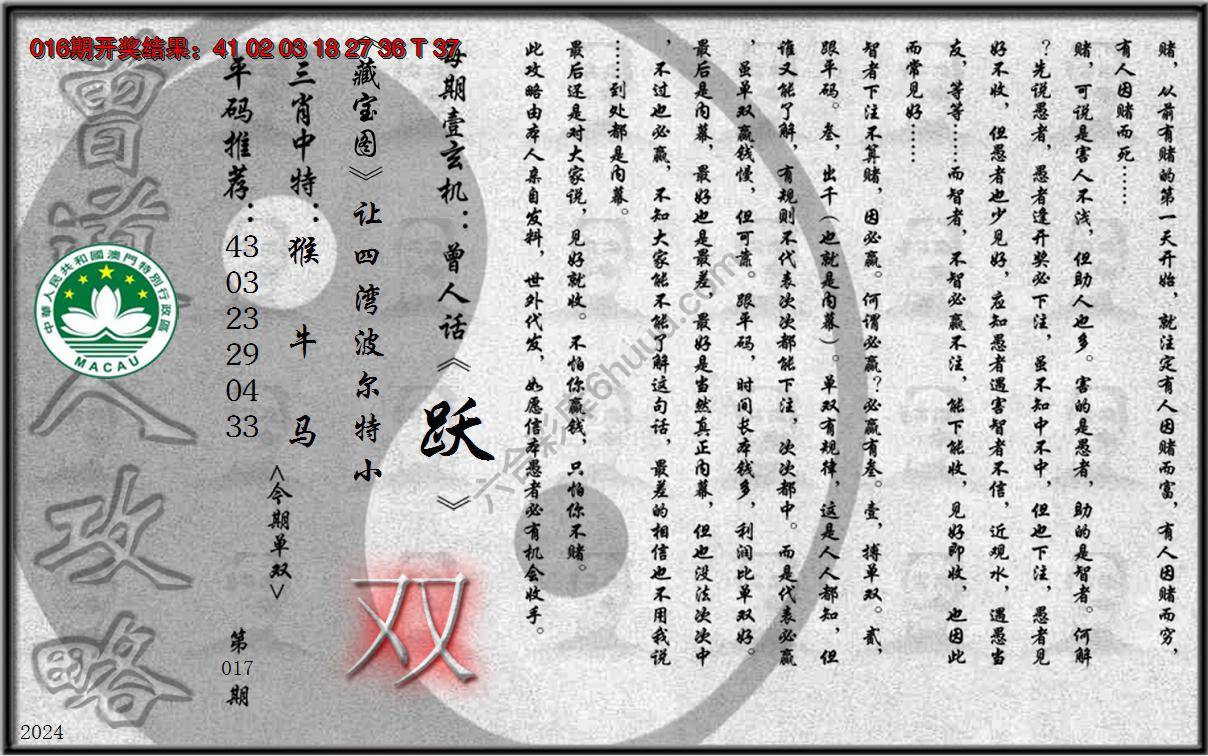 016期开奖结果：41 02 03 18 27 36 T 37
赌，从前有赌的第一天开始，就注定有人因赌而富，有人因赌而穷，
有人因赌而死……
赌，可说是害人不浅，但助人也多。害的是愚者，助的是智者。何解
？先说愚者，愚者逢开奖必下注，虽不知中不中，但也下注，愚者见
好不收，但愚者也少见好，应知愚者遇害智者不信，近观水，遇愚当
友，等等……而智者，不智必赢不注，能下能收，见好即收，也因此
而常见好……
智者下注不算赌，因必赢。何谓必赢？必赢有叁。壹，搏单双。贰，
跟平码。叁，出千（也就是内幕）。单双有规律，这是人人都知，但
谁又能了解，有规则不代表次次都能下注，次次都中。而是代表必赢
，虽单双赢钱慢，但可靠。跟平码，时间长本钱多，利润比单双好。
最后是内幕，最好也是最差，最好是当然真正内幕，但也没法次次中
，不过也必赢，不知大家能不能了解这句话，最差的相信也不用我说
……到处都是内幕。
最后还是对大家说，见好就收。不怕你赢钱，只怕你不赌。
此攻略由本人亲自发料，世外代发，如愿信本愚者必有机会收手。
每期壹玄机：曾人话《跃》
《藏宝图》让四湾波尔特小
双
三肖中特：猴 牛 马
<今期单双>
平码推荐：43 03 23 29 04 33
第017期
曾道人攻略
中華人民共和國澳門特別行政區
MACAU
2024